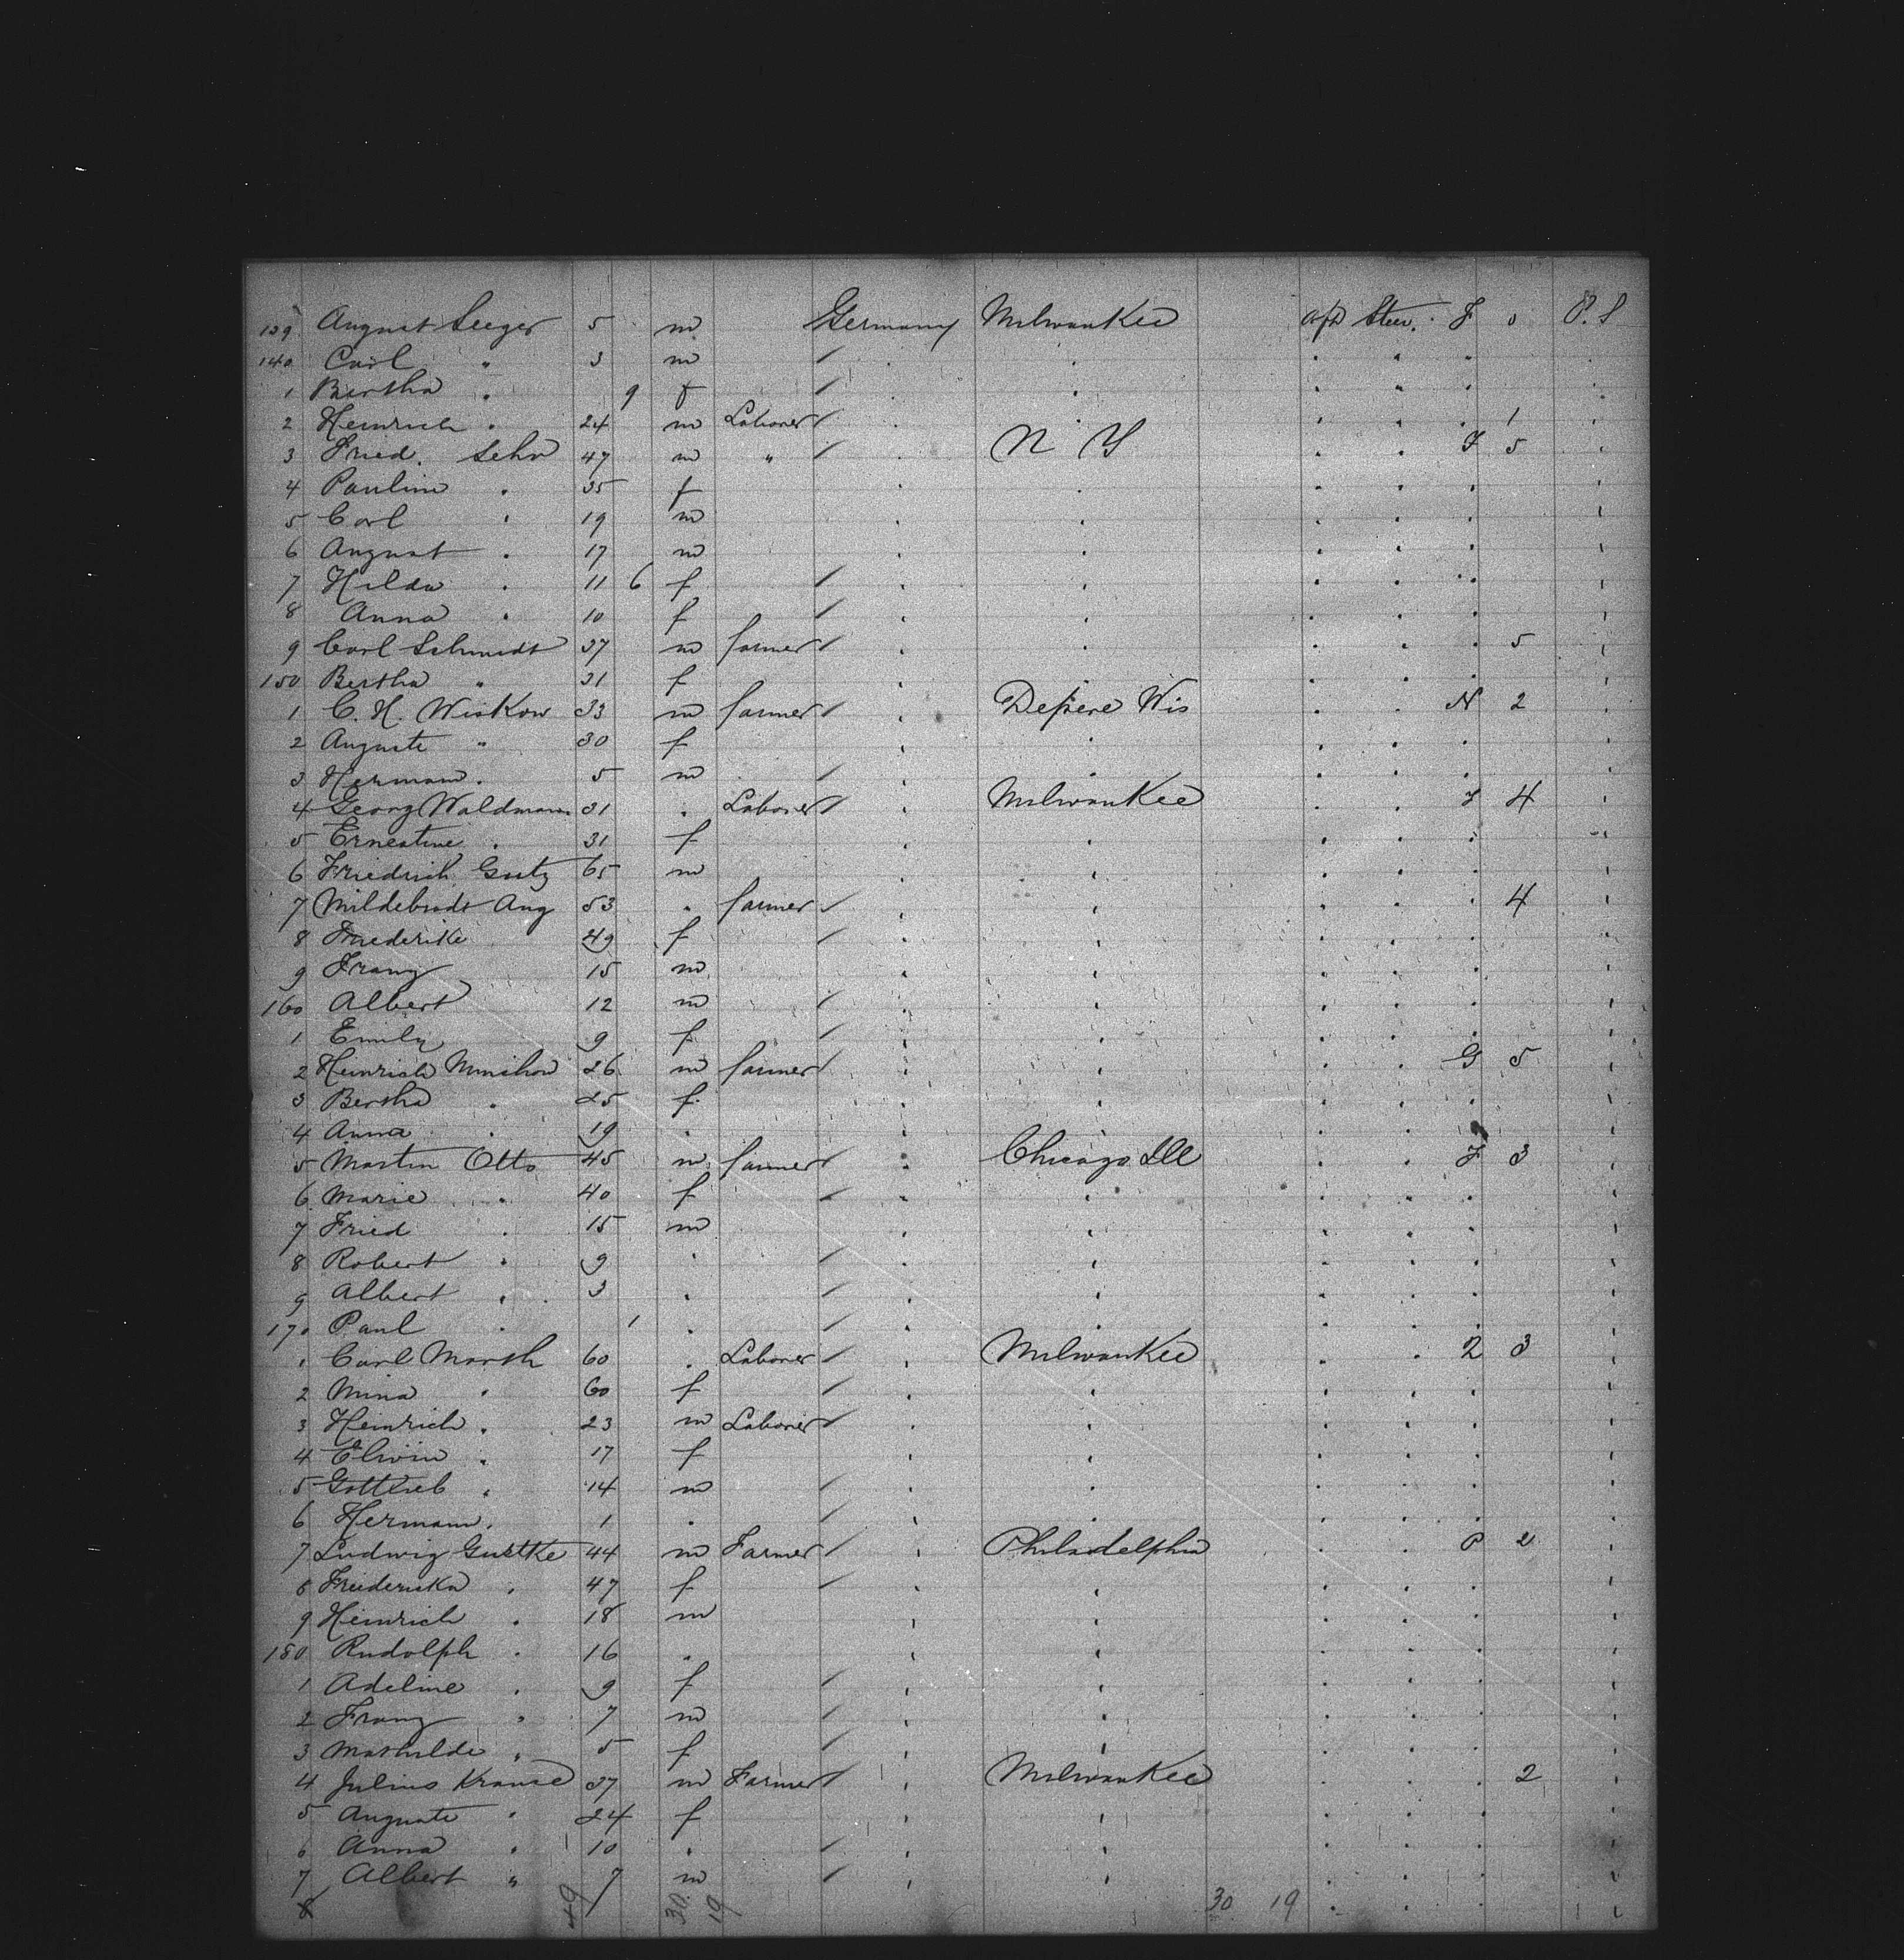 139 August Seeger 5 m Germany Milwaukee a/d Steer. F 0 P. S
140 Carl " 3 m
1 Bertha " 9 f
2 Heinrich " 24 m Laborer 1
3 Fried. Sehr 47 m " N Y F 5
4 Pauline " 35 f
5 Carl " 19 m
6 August " 17 m
7 Hilda " 11 6 f
8 Anna " 10 f
9 Carl Schmidt 37 m farmer 5
150 Bertha " 31 f
1 C. H. Wiskow 33 m farmer Depere Wis N 2
2 Auguste " 30 f
3 Hermann " 5 m
4 Georg Waldmann 31 " Laborer Milwaukee F 4
5 Ernestine " 31 f
6 Friedrich 65 m
7 Mildebrodt Aug 53 " farmer 4
8 Friederike 49 f
9 Franz 15 m
160 Albert 12 m
1 Emily 9 f
2 Heinrich 26 m farmer G 5
3 Bertha " 25 f
4 Anna " 19 "
5 Martin Otto 45 m farmer Chicago Ill F 3
6 Marie " 40 f
7 Fried " 15 m
8 Robert " 9 "
9 Albert " 3 "
170 Paul " 1 "
1 Carl Marsh 60 " Laborer Milwaukee 2 3
2 Mina " 60 f
3 Heinrich " 23 m Laborer
4 " 17 f
5 Gottlieb " 14 m
6 Hermann " 1 "
7 Ludwig Gustke 44 m Farmer Philadelphia P 2
8 Friedericka " 47 f
9 Heinrich " 18 m
180 Rudolph " 16 "
1 Adeline " 9 f
2 Franz " 7 m
3 Mathilde " 5 f
4 Julius Krause 37 m Farmer Milwaukee 2
5 Auguste " 24 f
6 Anna " 10 "
7 Albert " 7 m
8 49 30 19 30 19